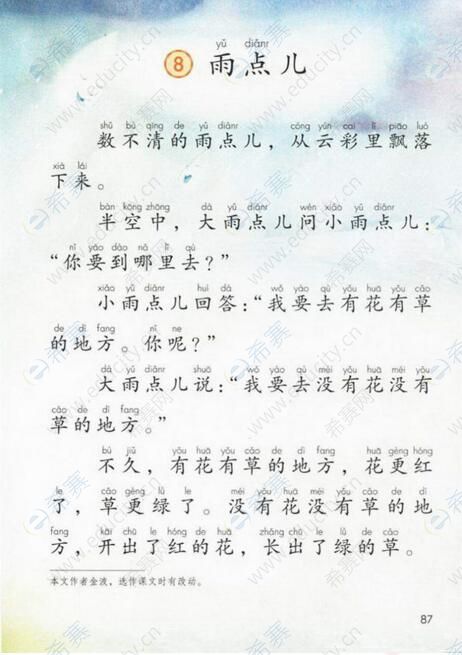 yǔ diǎnr
8 雨点儿
shǔ bù qīng de yǔ diǎnr cóng yún cai lǐ piāo luò
数不清的雨点儿，从云彩里飘落
xià lái
下来。
bàn kōng zhōng dà yǔ diǎnr wèn xiǎo yǔ diǎnr
半空中，大雨点儿问小雨点儿：
nǐ yào dào nǎ lǐ qù
“你要到哪里去？”
xiǎo yǔ diǎnr huí dá wǒ yào qù yǒu huā yǒu cǎo
小雨点儿回答：“我要去有花有草
de dì fang nǐ ne
的地方。你呢？”
dà yǔ diǎnr shuō wǒ yào qù méi yǒu huā méi yǒu
大雨点儿说：“我要去没有花没有
cǎo de dì fang
草的地方。”
bù jiǔ yǒu huā yǒu cǎo de dì fang huā gèng hóng
不久，有花有草的地方，花更红
le cǎo gèng lǜ le méi yǒu huā méi yǒu cǎo de dì
了，草更绿了。没有花没有草的地
fang kāi chū le hóng de huā zhǎng chū le lǜ de cǎo
方，开出了红的花，长出了绿的草。
本文作者金波，选作课文时有改动。
87
希赛网
www.educity.cn